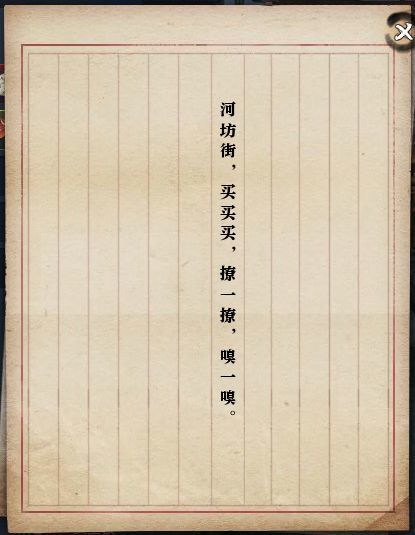 河坊街，买买买，撩一撩，嗅一嗅。